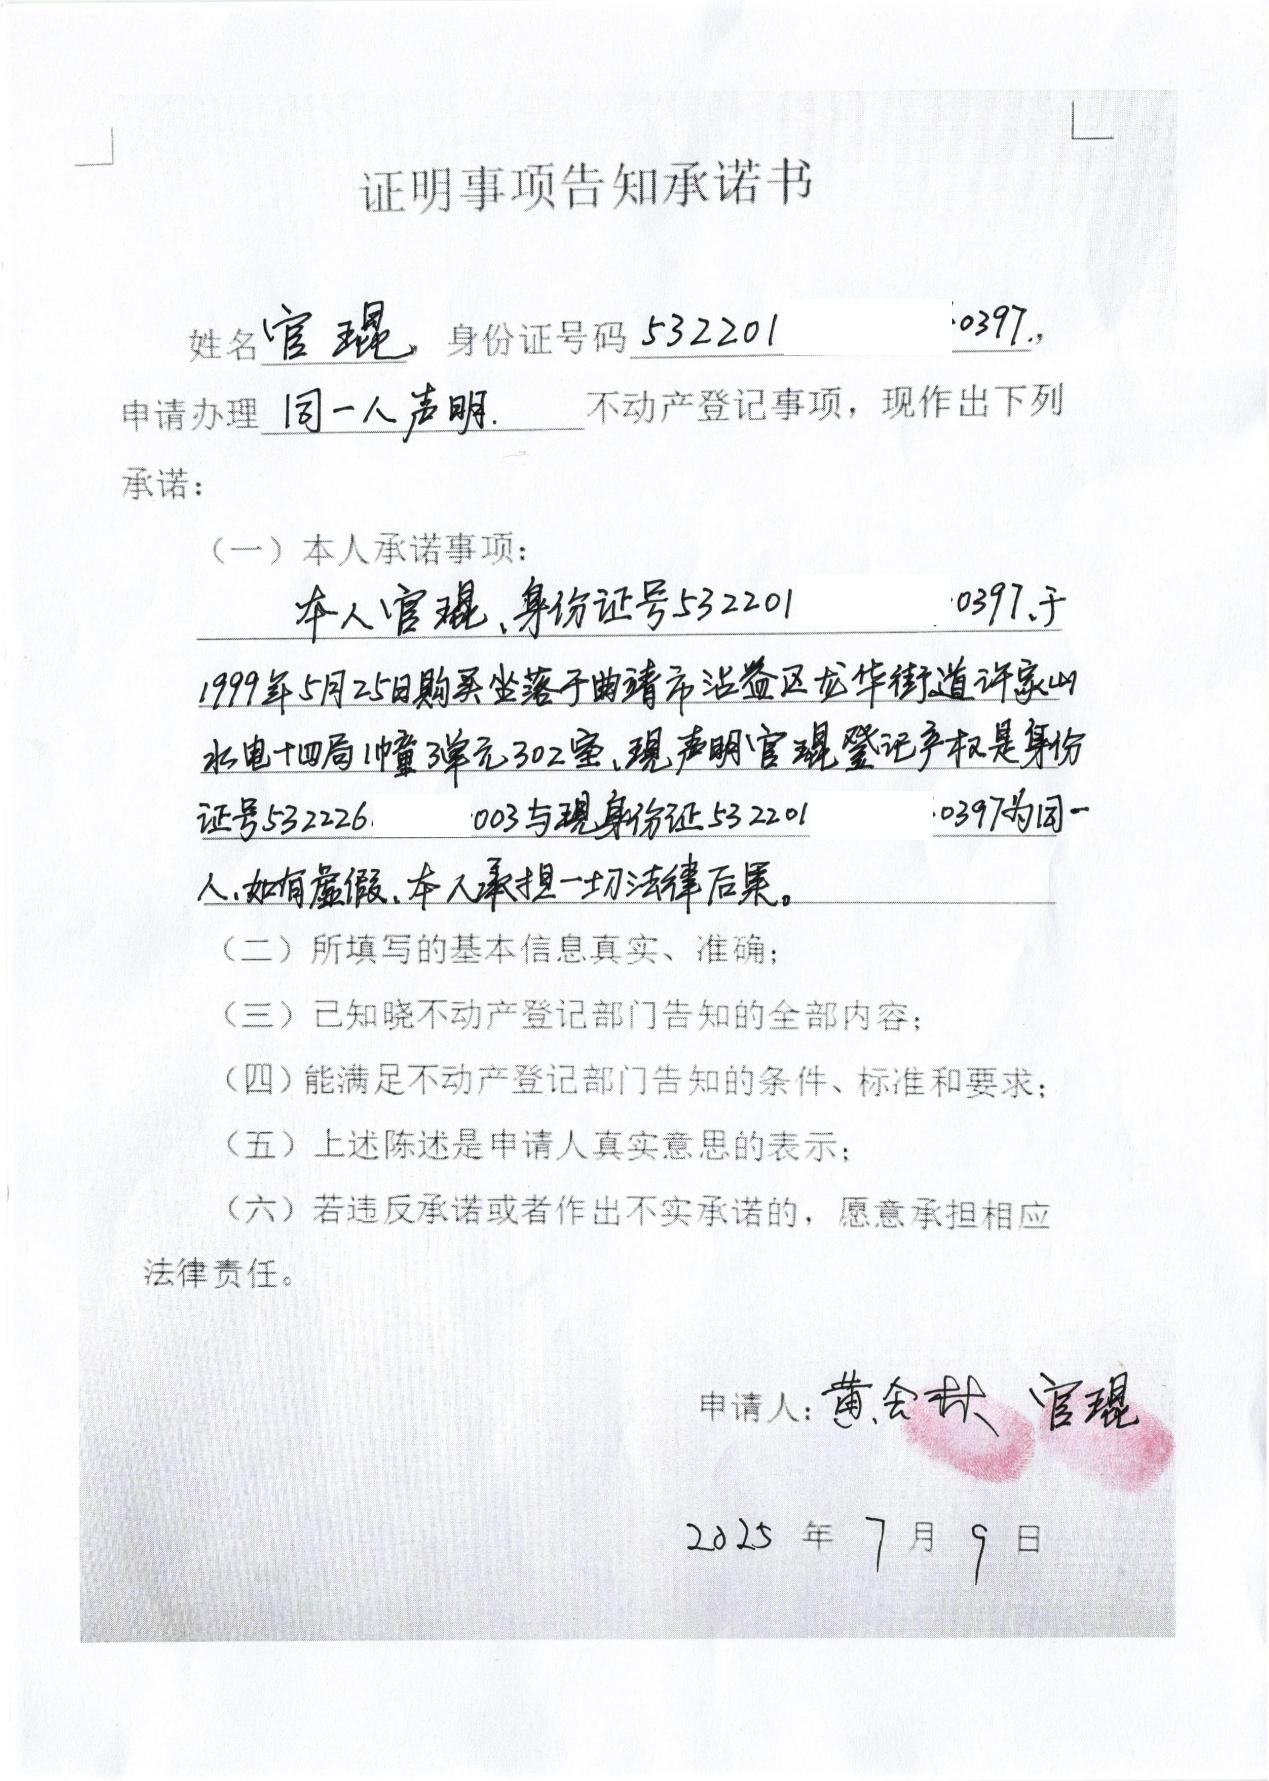 证明事项告知承诺书
姓名官琨，身份证号码532201 0397.，
申请办理同一人声明.不动产登记事项，现作出下列
承诺：
（一）本人承诺事项：
本人官琨、身份证号532201 0397、于
1999年5月25日购买坐落于曲靖市沾益区龙华街道许家山
水电十四局1幢3单元302室、现声明官琨登记产权是身份
证号532226 003与现身份证532201 0397为同一
人、如有虚假、本人承担一切法律后果。
（二）所填写的基本信息真实、准确；
（三）已知晓不动产登记部门告知的全部内容；
（四）能满足不动产登记部门告知的条件、标准和要求；
（五）上述陈述是申请人真实意思的表示；
（六）若违反承诺或者作出不实承诺的，愿意承担相应
法律责任。
申请人：黄会 官琨
2025 年 7 月 9 日